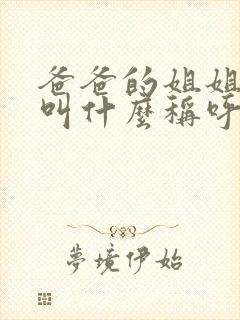 爸爸的姐姐
叫什麼稱呼
夢境伊始